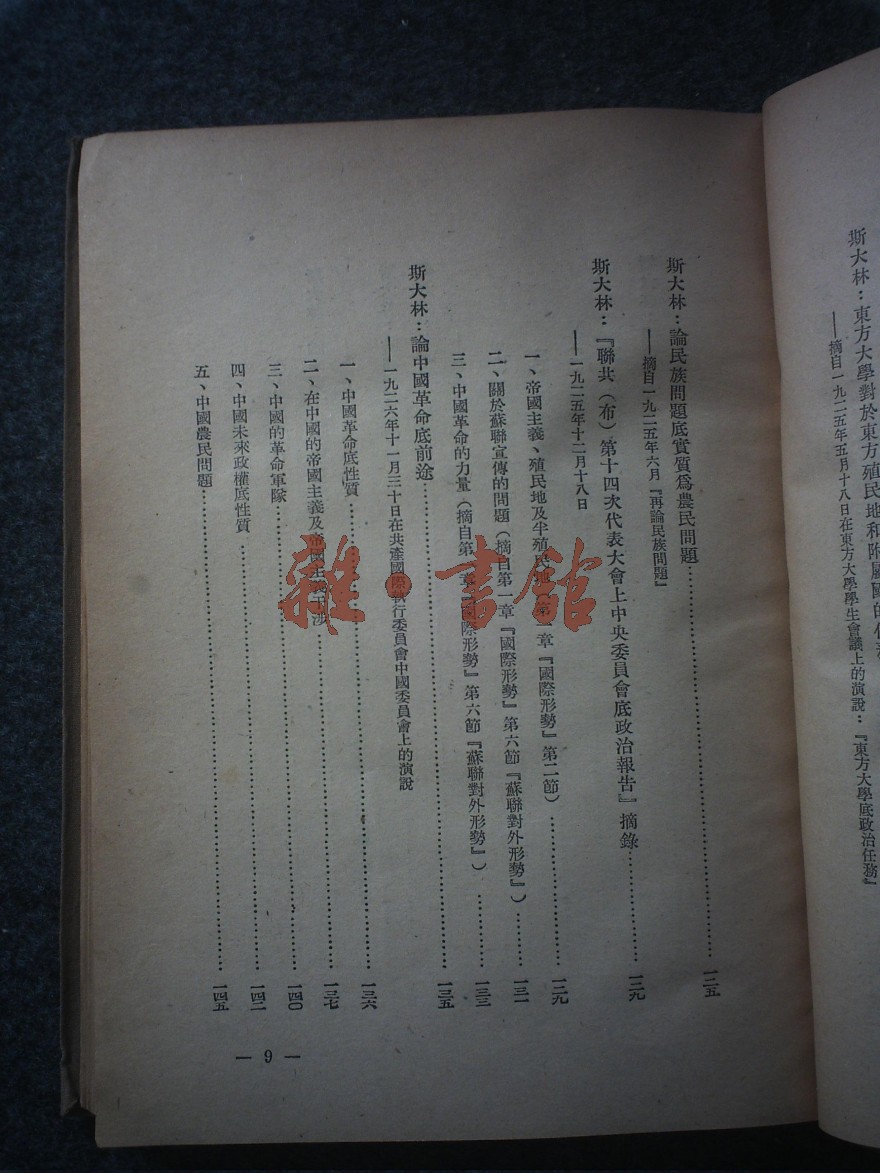 斯大林：東方大學對於東方殖民地和附屬國的任
——摘自一九二五年五月十八日在東方大學學生會議上的演說：『東方大學底政治任務』
斯大林：論民族問題底實質爲農民問題……一二五
——摘自一九二五年六月『再論民族問題』
斯大林：『聯共（布）第十四次代表大會上中央委員會底政治報告』摘錄……一二九
——一九二五年十二月十八日
一、帝國主義、殖民地及半殖民地 第一章『國際形勢』第二節）……一二九
二、關於蘇聯宣傳的問題（摘自第一章『國際形勢』第六節『蘇聯對外形勢』）……一三一
三、中國革命的力量（摘自第一章『國際形勢』第六節『蘇聯對外形勢』）……一三三
斯大林：論中國革命底前途……一三五
——一九二六年十一月三十日在共產國際執行委員會中國委員會上的演說
一、中國革命底性質……一三六
二、在中國的帝國主義及帝國主義干涉……一三七
三、中國的革命軍隊……一四〇
四、中國未來政權底性質……一四二
五、中國農民問題……一四五
— 9 —
雜·書館